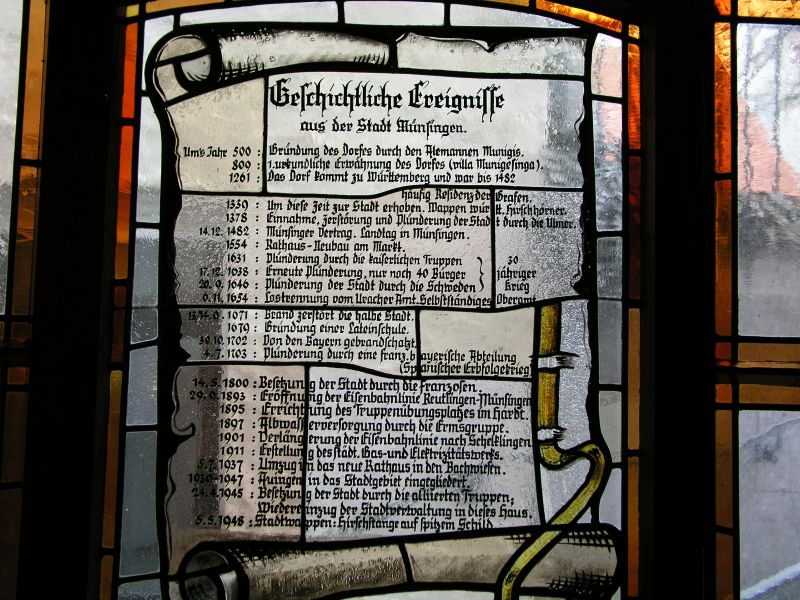 Geschichtliche Ereignisse
aus der Stadt Münsingen.
Um's Jahr 500 : Gründung des Dorfes durch den Alemannen Munigis.
809 : 1. urkundliche Erwähnung des Dorfes (villa Munigesinga).
1261 : Das Dorf kommt zu Württemberg und war bis 1482
häufig Residenz der Grafen.
1339 : Um diese Zeit zur Stadt erhoben. Wappen württ. Hirschhörner.
1378 : Einnahme, Zerstörung und Plünderung der Stadt durch die Ulmer.
14.12. 1482 : Münsinger Vertrag. Landtag in Münsingen.
1554 : Rathaus-Neubau am Markt.
1631 : Plünderung durch die kaiserlichen Truppen } 30
17.12. 1638 : Erneute Plünderung, nur noch 40 Bürger } jähriger
20.9. 1646 : Plünderung der Stadt durch die Schweden } Krieg
6.11. 1654 : Lostrennung vom Uracher Amt. Selbstständiges Oberamt
13./14.9. 1671 : Brand zerstört die halbe Stadt.
1679 : Gründung einer Lateinschule.
30.10. 1702 : Von den Bayern gebrandschatzt.
4.7. 1703 : Plünderung durch eine franz. bayerische Abteilung
(Spanischer Erbfolgekrieg)
14.5. 1800 : Besetzung der Stadt durch die Franzosen.
1893 : Eröffnung der Eisenbahnlinie Reutlingen-Münsingen
1895 : Errichtung des Truppenübungsplatzes im Hardt.
1897 : Albwasserversorgung durch die Ermsgruppe.
1901 : Verlängerung der Eisenbahnlinie nach Schelklingen
1911 : Erstellung des städt. Gas- und Elektrizitätswerks.
5.7. 1937 : Umzug in das neue Rathaus in den Bachwiesen.
1930-1947 : Auingen in das Stadtgebiet eingegliedert.
24.4. 1945 : Besetzung der Stadt durch die alliierten Truppen;
Wiedereinzug der Stadtverwaltung in dieses Haus.
5.5. 1948 : Stadtwappen: Hirschstange auf spitzem Schild.